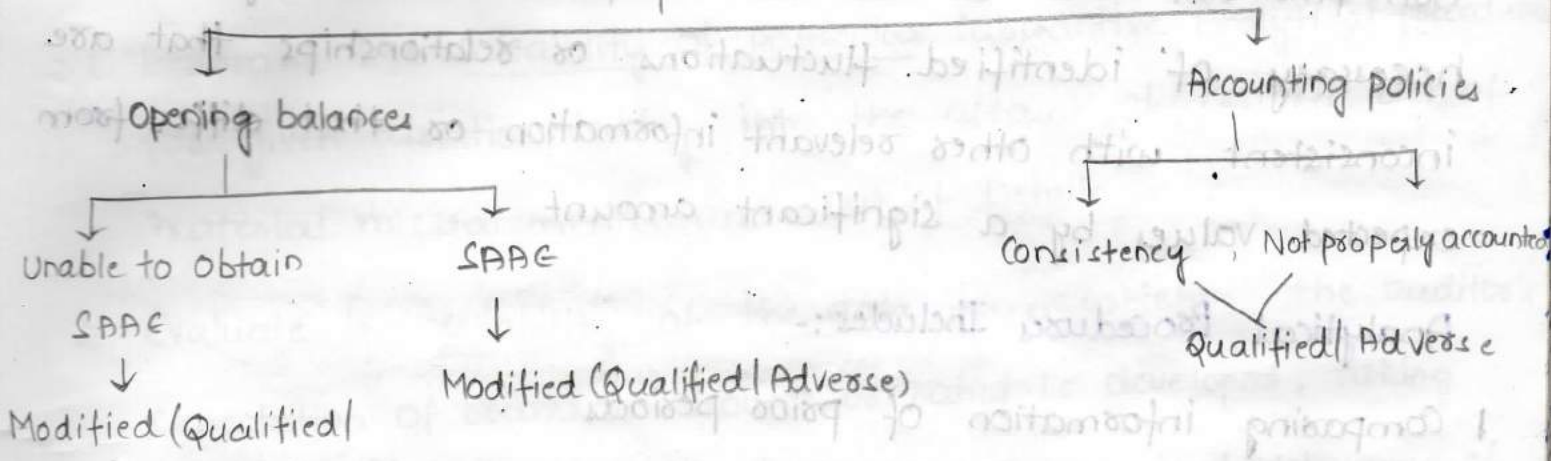 Opening balances
Accounting policies.
Unable to obtain
SAAE
SAAE
Consistency, Not properly accounted
Modified (Qualified/
Modified (Qualified/Adverse)
Qualified/Adverse